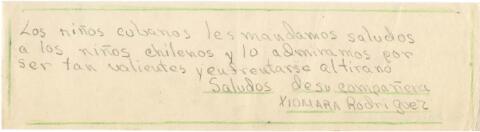 Los niños cubanos les mandamos saludos
a los niños chilenos y lo admiramos por
ser tan valientes y enfrentarse al tirano
Saludos de su compañera
XIOMARA Rodriguez